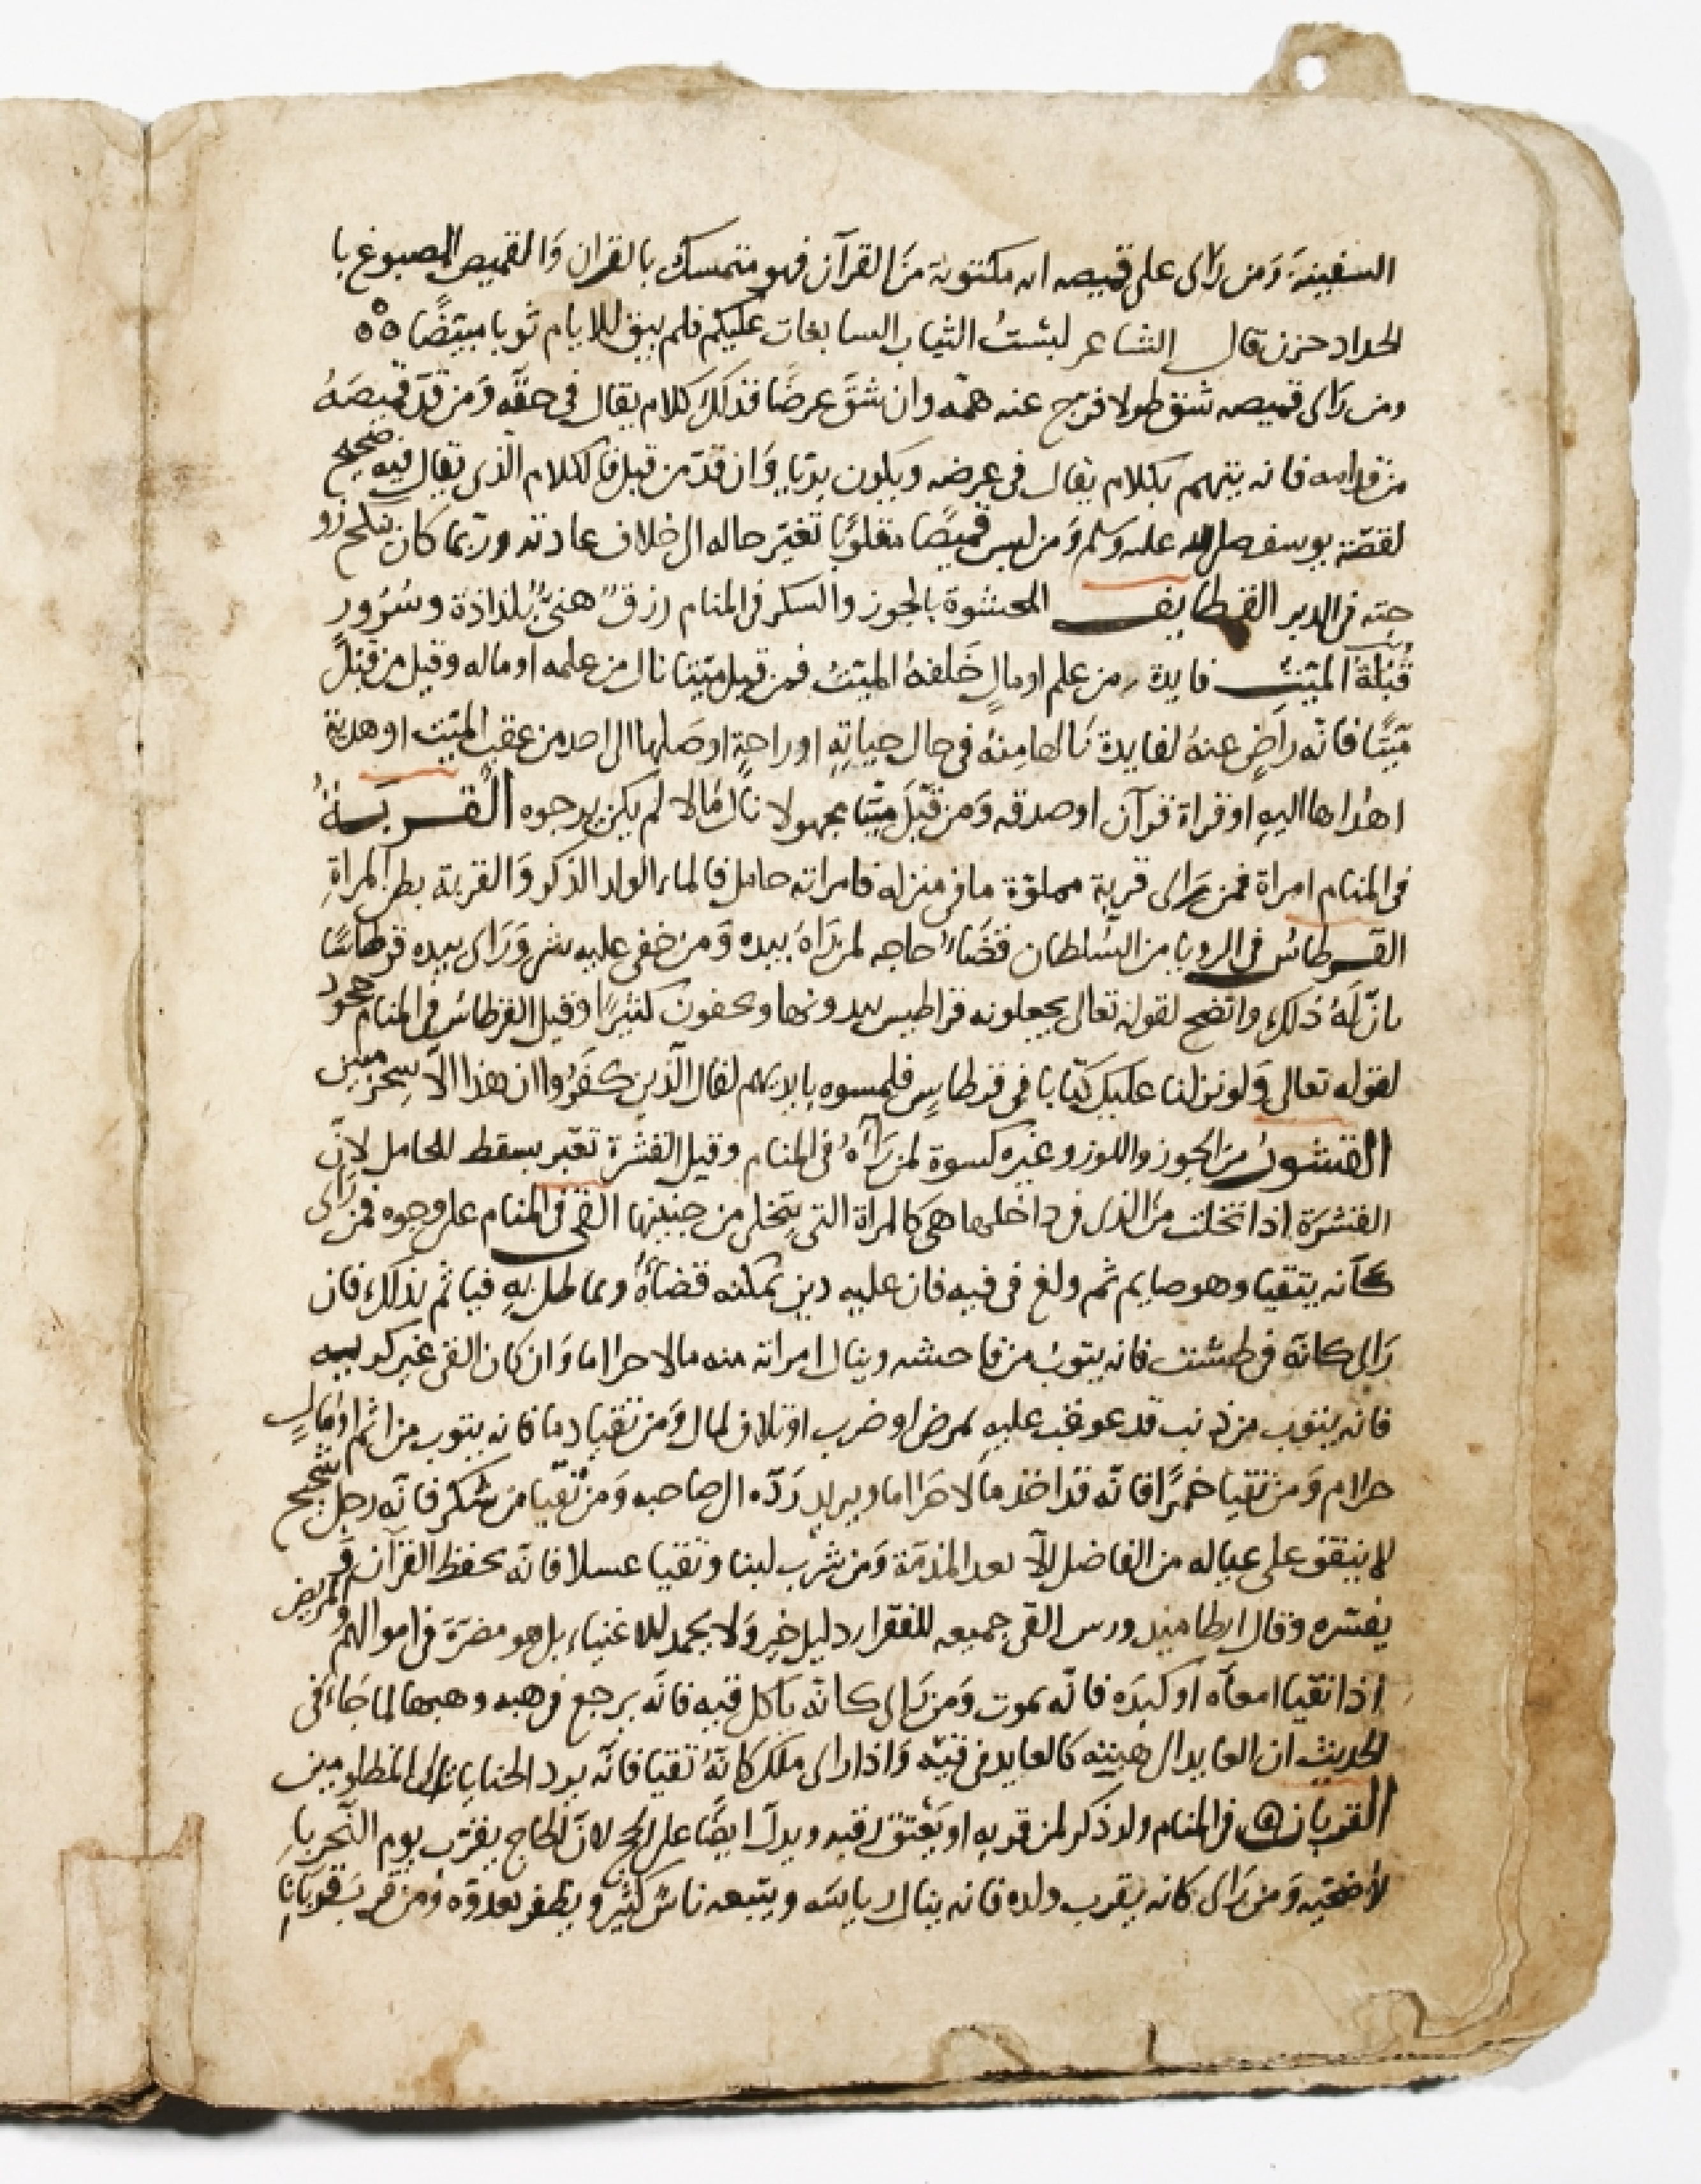 السفينة وَمن راى على قميصه ايه مكتوبة منَ القرآن فهو متمسك بالقران وَالقميص المصبوغ با
لحداد حزن قال الشاعر لبستُ الثياب السابغات عليكم فلم يبق للايام ثوبا مبيّضًا
ومن رَاى قميصه شق طولا فرّج عنه همّه وان شقَّ عرضًا فذلك كلام يقال في حقّه وَمن قدّ قميصَهُ
من قدامه فانه يتهم بكلام يقال في عرضه ويكون بريّا وَان قدّ من قبل فالكلام الّذى يقال فيه صحيح
لقصّة يوسف صلى الله عليه وسلم وَمن لبس قميصًا مقلوبًا تغيّر حاله الى خلاف عادته وربّما كان ينكح زو
جته في الدبر القطايف المحشوة بالجوز والسكر في المنام رزقٌ هنيٌّ بلذاذة وسُرُور
قُبْلَةُ الميّتِ فايدة من علم او مالٍ خَلفهُ الميّتُ فمن قبل ميّتا نال من علمه او ماله وقيل من قبّلَ
ميّتًا فانّه راضٍ عنهُ لفايدة نالها مِنهُ في حال حياتِهِ او راحةٍ اوصَلها الى احد من عقب الميّت او هدية
اهداها اليهِ او قراة قرآن او صدقه وَمن قبّلَ ميّتا مجهولا نال مَالا لم يكن يرجوه القربَةُ
في المنام امراة فمن رَاى قربة مملوّة ما في منزله فامراته حامل فالماء الولد الذكر وَالقربة بطن المراةِ
القرطاسُ في الرويا من السُلطان قضَاءُ حاجه لمن رَاهَ بيده وَمن خفى عليه شى وَرَاى بيده قرطاسًا
بانَ لَهُ ذلك واتضح لقوله تعالى يجعلونه قراطيس يبدونها ويخفون كثيرًا وقيل القرطاسُ في المنام جحود
لقوله تعالى وَلو نزلنا عليك كتابا في قرطاسٍ فلمسوه بايديهم لقال الّذين كفَرُوا ان هذا الّا سِحرٌ مبين
القشورُ منَ الجوز واللوز وغيره كسوة لمن رَآهُ في المنام وقيل القشْرة تعبّر بسقط للحامل لانّ
القشرَة اذا تخلت منَ الذى في داخلها هى كالمراة التي يتخلى من جنينها القى في المنام على وجوه فمن رَاى
كَانه يتقيا وهو صايم ثم ولغ في فيه فان عليه دين يمكنه قضاؤُهُ ويماطل بهِ فياثم بذلك فان
رَاى كانّه في طشت فانه يتوبُ من فاحشه وينال امراته منه مالا حراما وَان كان القى غير كريه
فانه يتوب من ذنب قد عوقب عليهِ بمرض او ضرب او تلاف لمال وَمن تقيا دما فانه يتوب من اثم او مَالٍ
حرام وَمن تقيا خمرًا فانّه قد اخذ مَالا حَرَاما ويريد رَدّه الى صاحبه وَمن تقيّا من سُكر فانّه رجل شحيح
لا ينفق على عياله من الفاضل الّا بعد المذمّة وَمن شرب لبنا وتقيا عسلا فانّه يحفظ القرآن و
يفسّره وقال ارطاميدورس القى جميعه للفقراء دليل خير وَلا يحمد للاغنياء بل هو مضرّة في اموالهم والمريض
اذا تقيا امعآه او كبدَه فانّه يموت وَمن رَاى كانّه يَاكل قيه فانّه يرجع في هبه وهبها لما جَاءَ في
الحديث ان العايد الى هبته كالعايد في قيّه وَاذا رَاى ملك كانّهُ تقيا فانّه يرد الجنايات الى المظلومين
القربان في المنام ولد ذكر لمن قربه او يعْتِق رقبه ويدلّ ايضًا على الحج لانّ الحاج يقرّب يوم النّحر با
لاضحيّه وَمن رَاى كانه يقرب ولده فانه ينال رياسَه ويتبعه ناسٌ كثيرٌ ويظفر بعدوّه وَمن قرّب قربانا